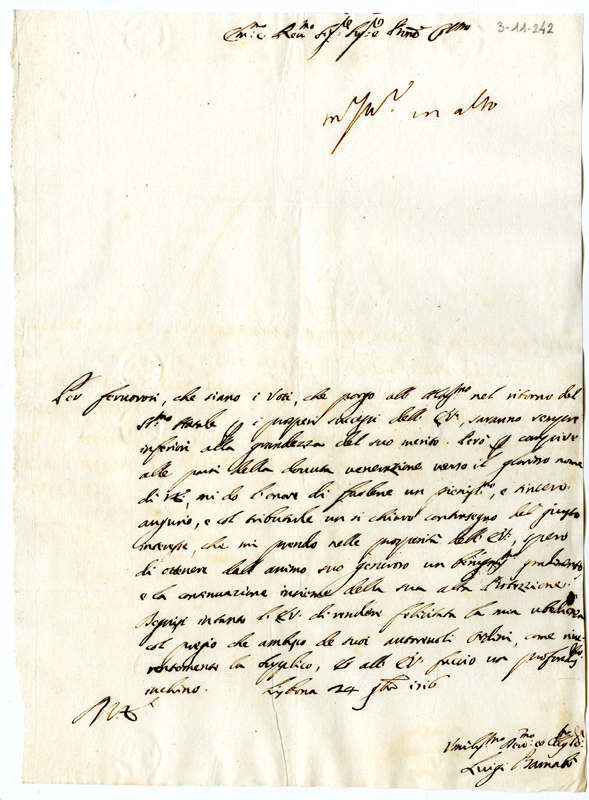 3-11-242
in alto
Per fervorosi, che siano i Voti, che porgo all' Altissmo nel ritorno del
Stmo Natale i prosperi successi dell' EV., saranno sempre
inferiori alla grandezza del suo merito. Però
alle parti della dovuta venerazione verso il glorioso nome
di VE., mi do l'onore di farlene un pienissmo, e sincero
augurio, e col tributarle un sì chiaro contrasegno del giusto
interesse, che mi prendo nelle prosperità dell' EV., spero
di ottenere dall' animo suo generoso un gradimento
e la continuazione insieme della sua alta Protezzione.
intanto l' EV. di rendere felicitata la mia ubbidienza
col pregio che ambisco de suoi autorevoli ordini, come rive
rentemente la supplico, et all' EV. faccio un profondo
inchino. Lisbona 24 9bre 1716
Luigi